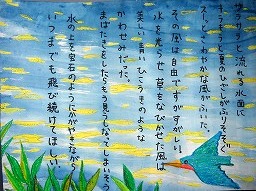 サラサラと流れる水面に
キラキラと夏のひざしがふりそそぐ
スーッとさわやかな風がふいた。
その風は自由ですがすがしい。
水を光らせ草をなびかせた風は
美しい青いひこうきのような
かわせみだった。
まばたきをしたらもう見うしなってしまいそう
水の上を宝石のようにかがやきながら
いつまでも飛び続けてほしい。